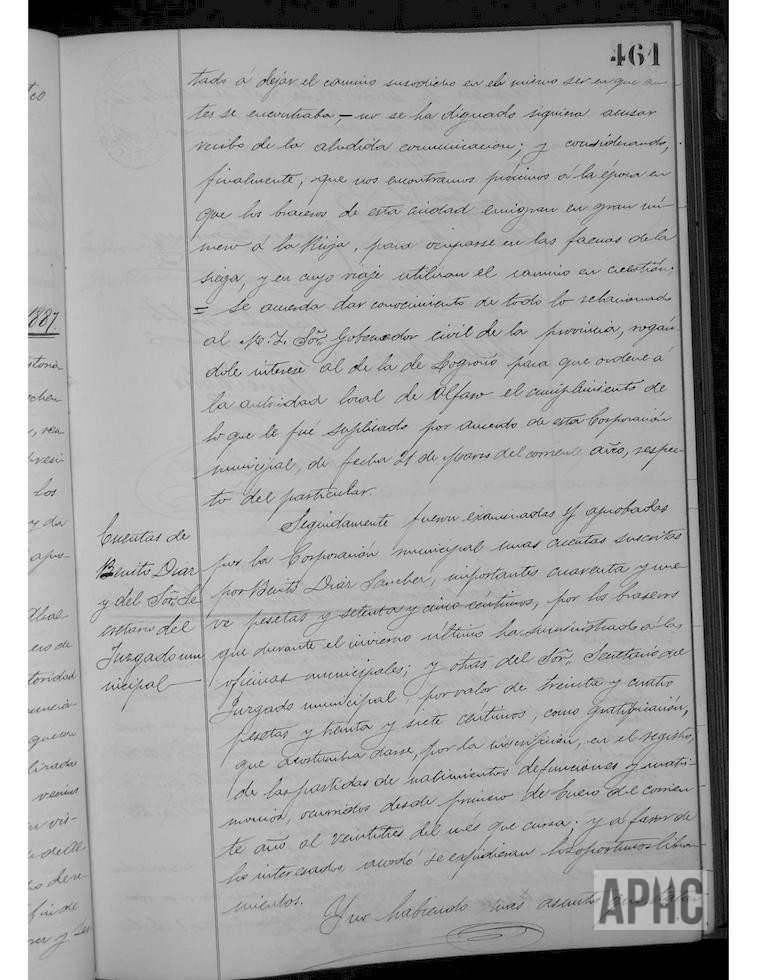 461
tado á dejar el camino susodicho en el mismo ser en que an-
tes se encontraba, – no se ha dignado siquiera acusar
recibo de la aludida comunicacion; y considerando,
finalmente, que nos encontramos próximos á la época en
que los braceros de esta ciudad emigran en gran nú-
mero á la Rioja, para ocuparse en las faenas de la
siega, y en cuyo viaje utilizan el camino en cuestión;
= Se acuerda dar conocimiento de todo lo relacionado
al M. I. Sor. Gobernador civil de la provincia, rogán-
dole interese al de la de Logroño para que ordene á
la autoridad local de Alfaro el cumplimiento de
lo que le fué suplicado por acuerdo de esta Corporación
municipal, de fecha 21 de Marzo del corriente año, respec-
to del particular.
Cuentas de
Benito Diaz
y del Sor. Se-
cretario del
Juzgado mu-
nicipal
Seguidamente fueron examinadas y aprobadas
por la Corporación municipal unas cuentas suscritas
por Benito Diaz Sanchez, importantes cuarenta y nue-
ve pesetas y setenta y cinco céntimos, por los braseros
que durante el invierno último ha suministrado á las
oficinas municipales; y otras del Sor. Secretario del
Juzgado municipal, por valor de treinta y cuatro
pesetas y treinta y siete céntimos, como gratificación,
que acostumbra darse, por la inscripción, en el registro,
de las partidas de nacimientos defunciones y matri-
monios, ocurridos desde primero de Enero del corrien-
te año al veintitres del més que cursa; y á favor de
los interesados, acordó se expidieran los oportunos libra-
mientos.
Y no habiendo más asuntos que tratar
1887.
APHC